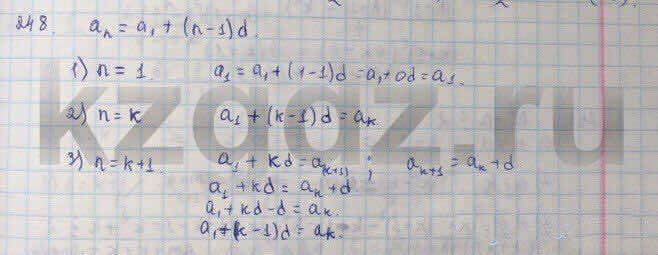 248. aₙ = a₁ + (n-1)d.
1) n = 1 a₁ = a₁ + (1-1)d = a₁ + 0d = a₁.
2) n = k a₁ + (k-1)d = aₖ
3) n = k+1. a₁ + kd = a₍ₖ₊₁₎ ; aₖ₊₁ = aₖ + d
a₁ + kd = aₖ + d.
a₁ + kd - d = aₖ.
a₁ + (k-1)d = aₖ.
kzgdz.ru